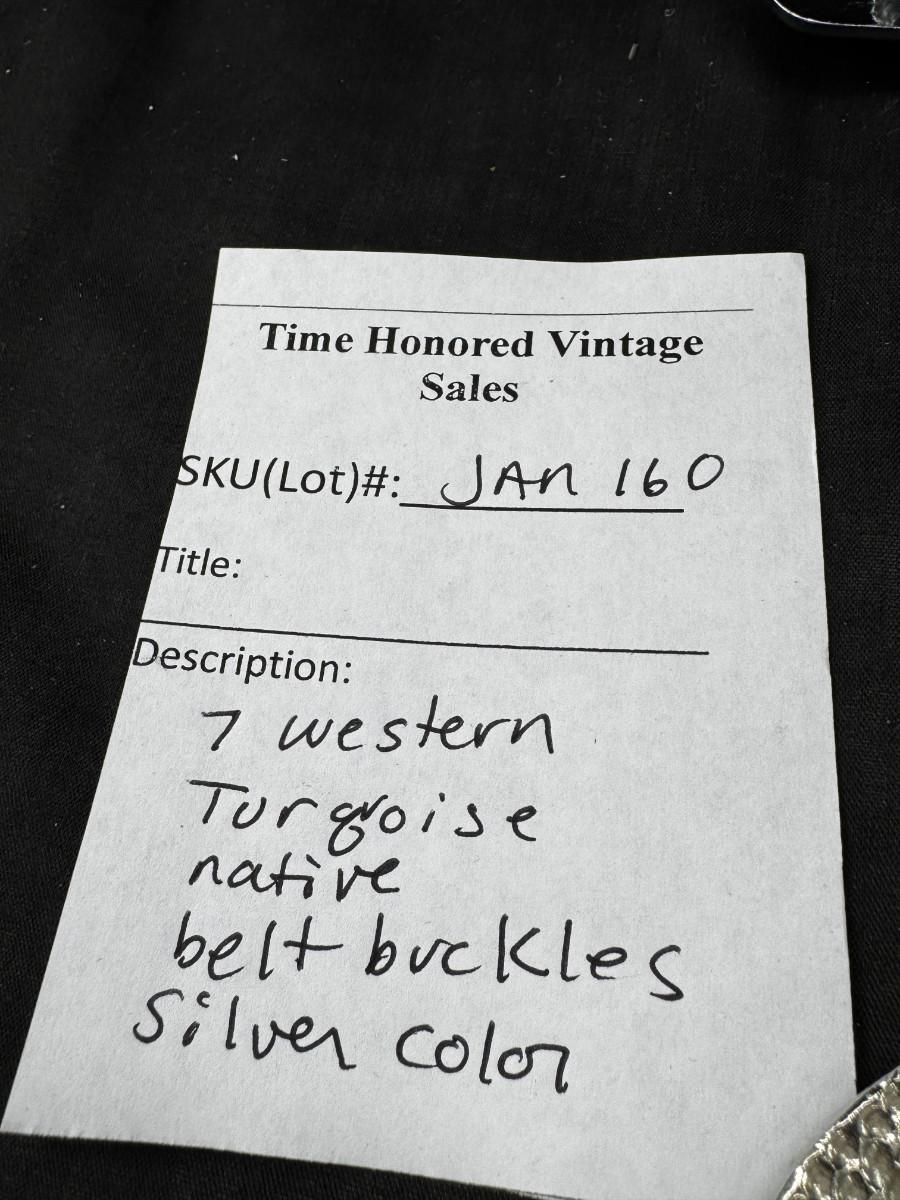 Time Honored Vintage
Sales
SKU(Lot)#: JAN 160
Title:
Description:
7 western
Turqoise
native
belt buckles
Silver color